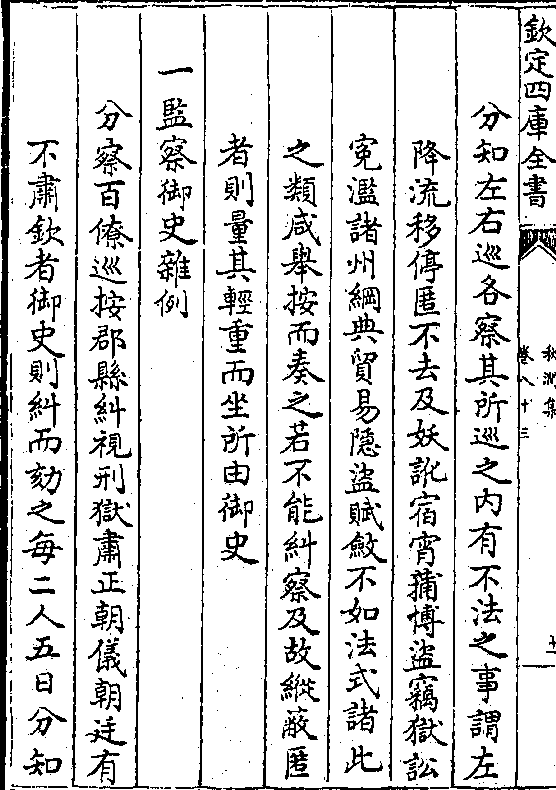 欽定四庫全書
秋澗集
卷八十三
分知左右巡各察其所巡之内有不法之事謂左
降流移停匿不去及妖訛宿宵蒱博盜竊獄訟
寃濫諸州綱典貿易隱盜賦斂不如法式諸此
之類咸舉按而奏之若不能糾察及故縱蔽匿
者則量其輕重而坐所由御史
一監察御史雜例
分察百僚巡按郡縣糾視刑獄肅正朝儀朝廷有
不肅欽者御史則糾而劾之每二人五日分知